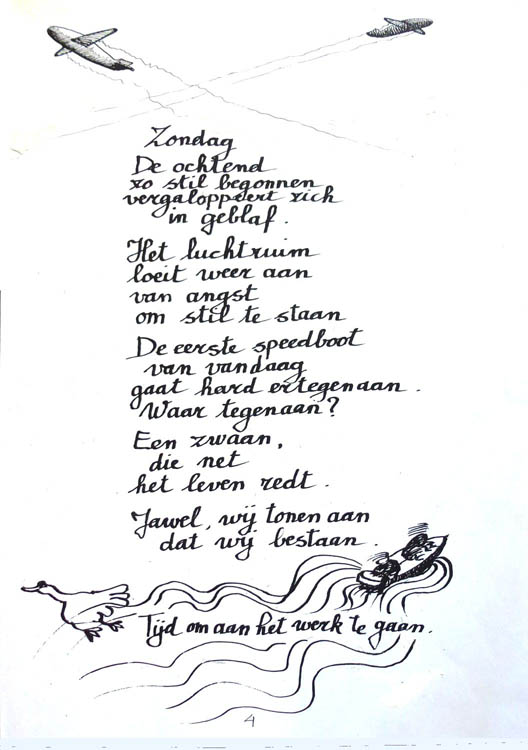 Zondag
De ochtend
zo stil begonnen
vergaloppeert zich
in geblaf.
Het luchtruim
loeit weer aan
van angst
om stil te staan
De eerste speedboot
van vandaag
gaat hard ertegenaan.
Waar tegenaan?
Een zwaan,
die net
het leven redt.
Jawel, wij tonen aan
dat wij bestaan.
Tijd om aan het werk te gaan.
4